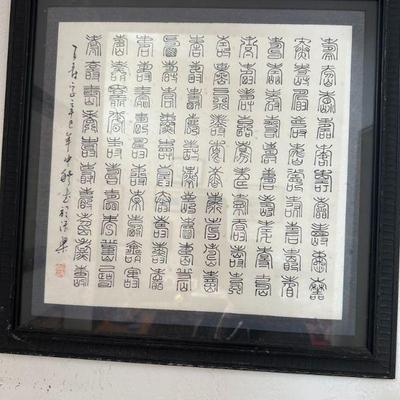 壽壽壽壽壽壽壽壽壽壽
壽壽壽壽壽壽壽壽壽壽
壽壽壽壽壽壽壽壽壽壽
壽壽壽壽壽壽壽壽壽壽
壽壽壽壽壽壽壽壽壽壽
壽壽壽壽壽壽壽壽壽壽
壽壽壽壽壽壽壽壽壽壽
壽壽壽壽壽壽壽壽壽壽
壽壽壽壽壽壽壽壽壽壽
壽壽壽壽壽壽壽壽壽壽
辛巳年中秋